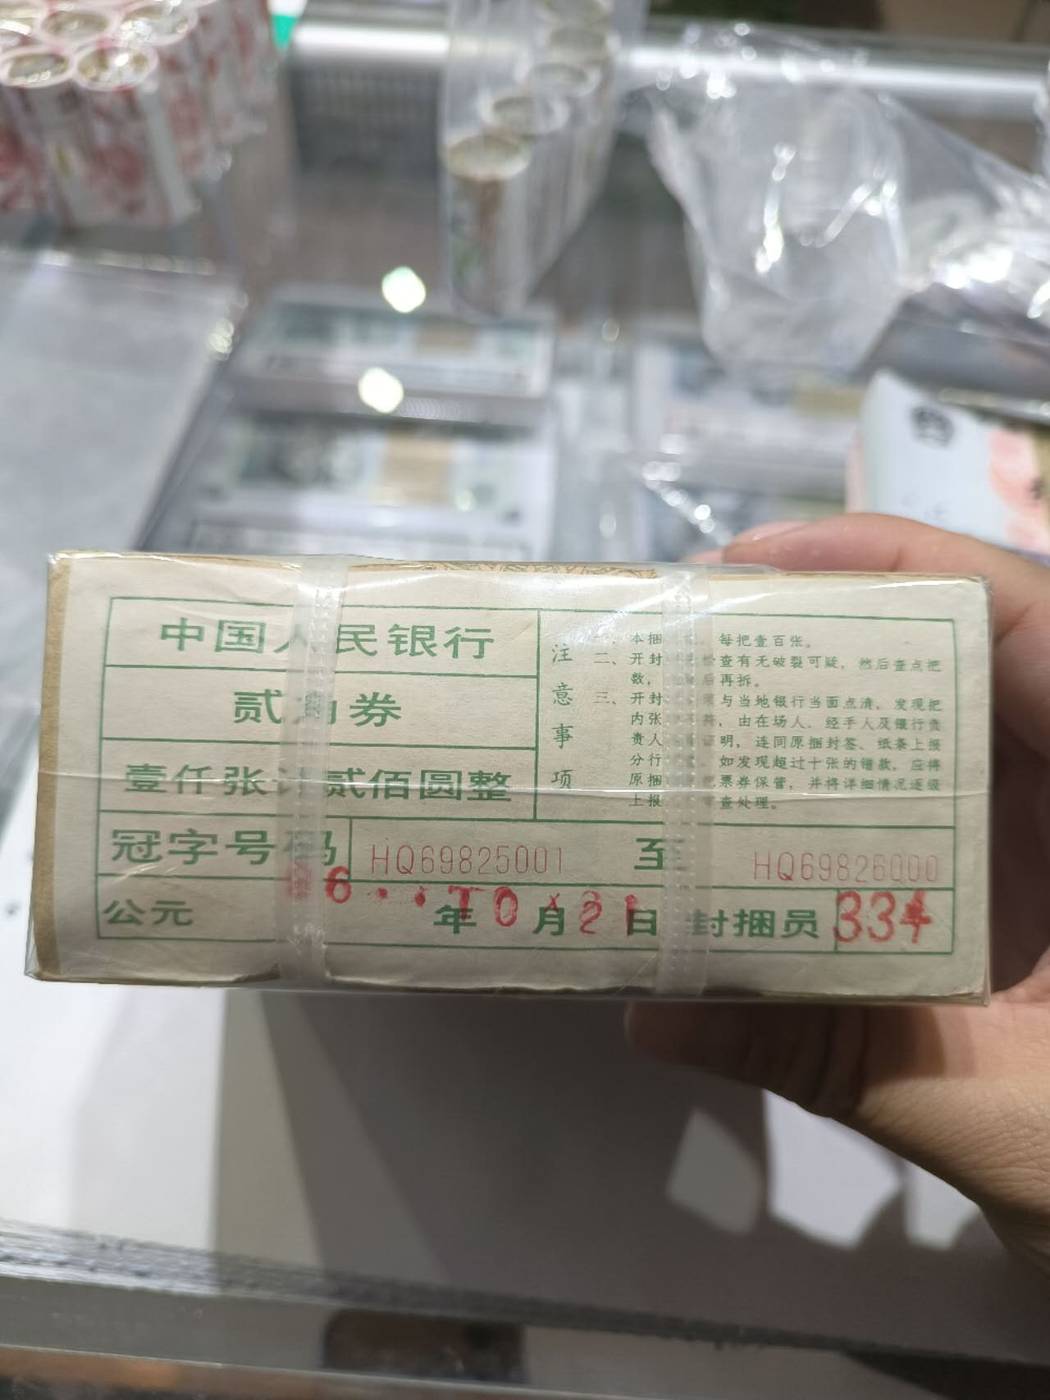 中国人民银行
贰角券
壹仟张计贰佰圆整
冠字号码 HQ69825001 至 HQ69826000
公元 6 年 10 月 21 日 封捆员 334
注意事项
一、本捆 每把壹百张。
二、开封 检查有无破裂可疑，然后查点把
数， 后再拆。
三、开封 与当地银行当面点清，发现把
内张 ，由在场人、经手人及银行负
责人 证明，连同原捆封签、纸条上报
分行 如发现超过十张的错款，应将
原捆 票券保管，并将详细情况逐级
上报 查处理。